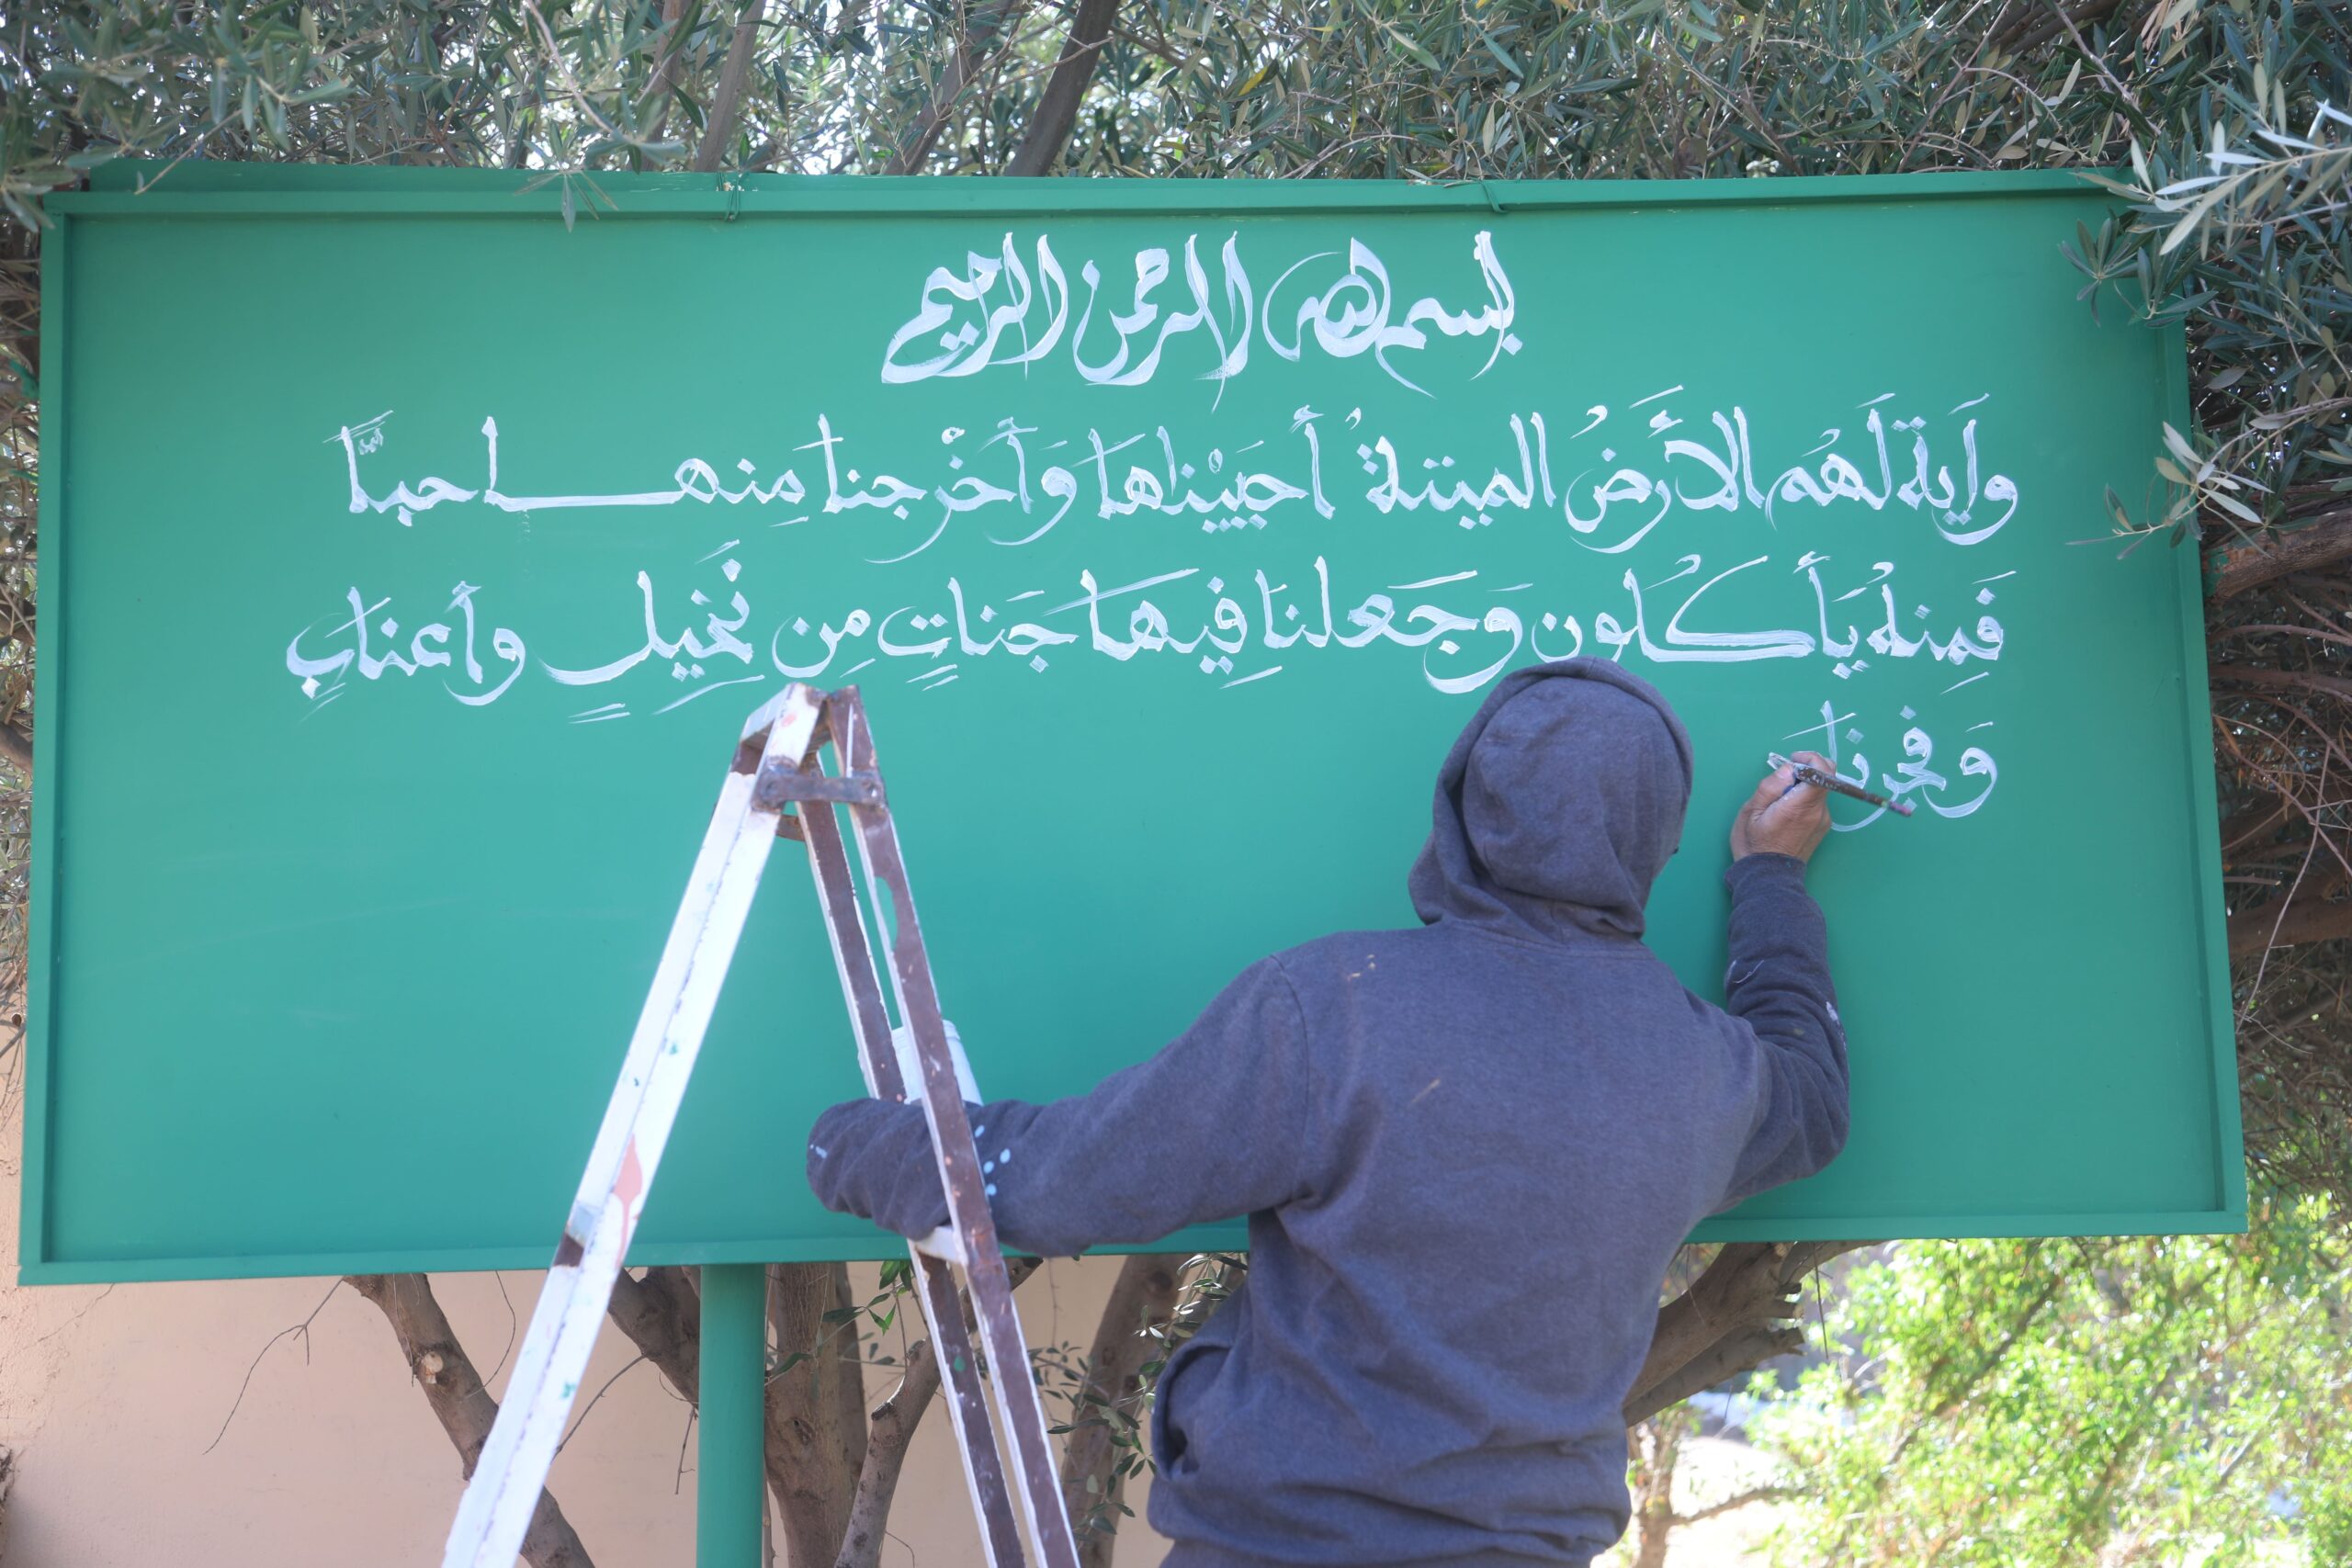 بسم الله الرحمن الرحيم
وَآية لَهُم الأَرضُ الميتةُ أحيَيْناها وَأَخْرجنا مِنها حبّاً
فَمِنهُ يَأكُلون وَجَعلنَا فِيها جَناتٍ مِن نَخِيلٍ وأَعنَابٍ
وَفجرنَا